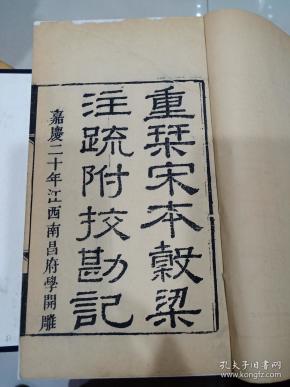 重栞宋本穀梁
注疏附挍勘記
嘉慶二十年江西南昌府學開雕
孔夫子旧书网